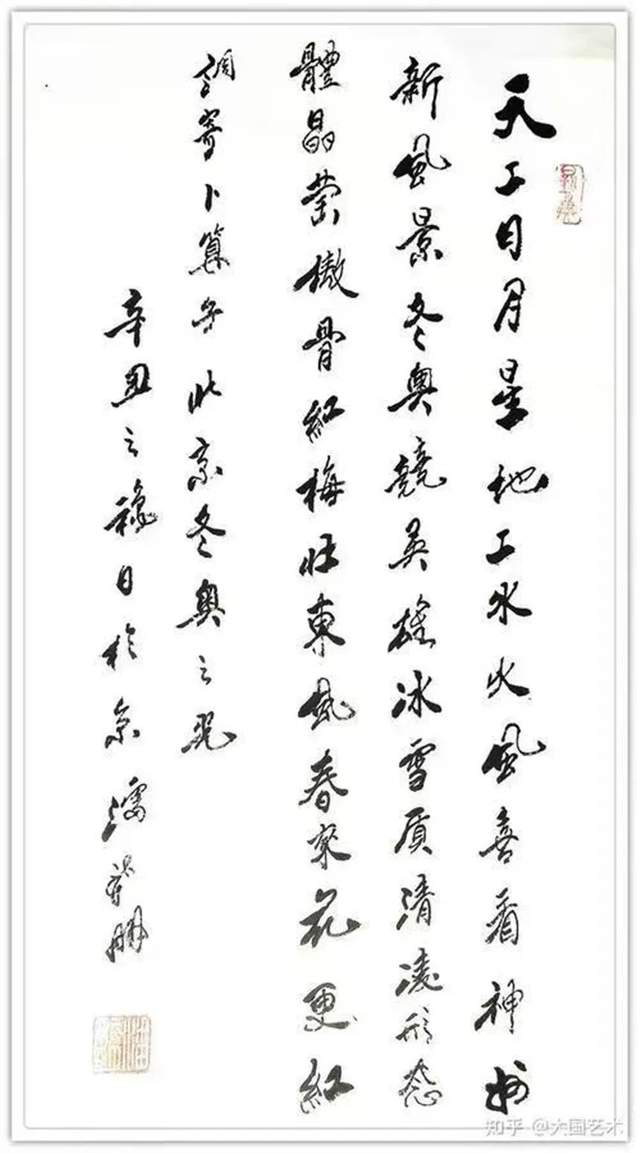 天工日月星地工水火風喜看神州
新風景冬奥競英雄冰雪质清凌形态
體晶莹傲骨紅梅旺東風春來花更紅
調寄卜算子北京冬奥之
辛丑之穐日於京潘
知乎 @大国艺术